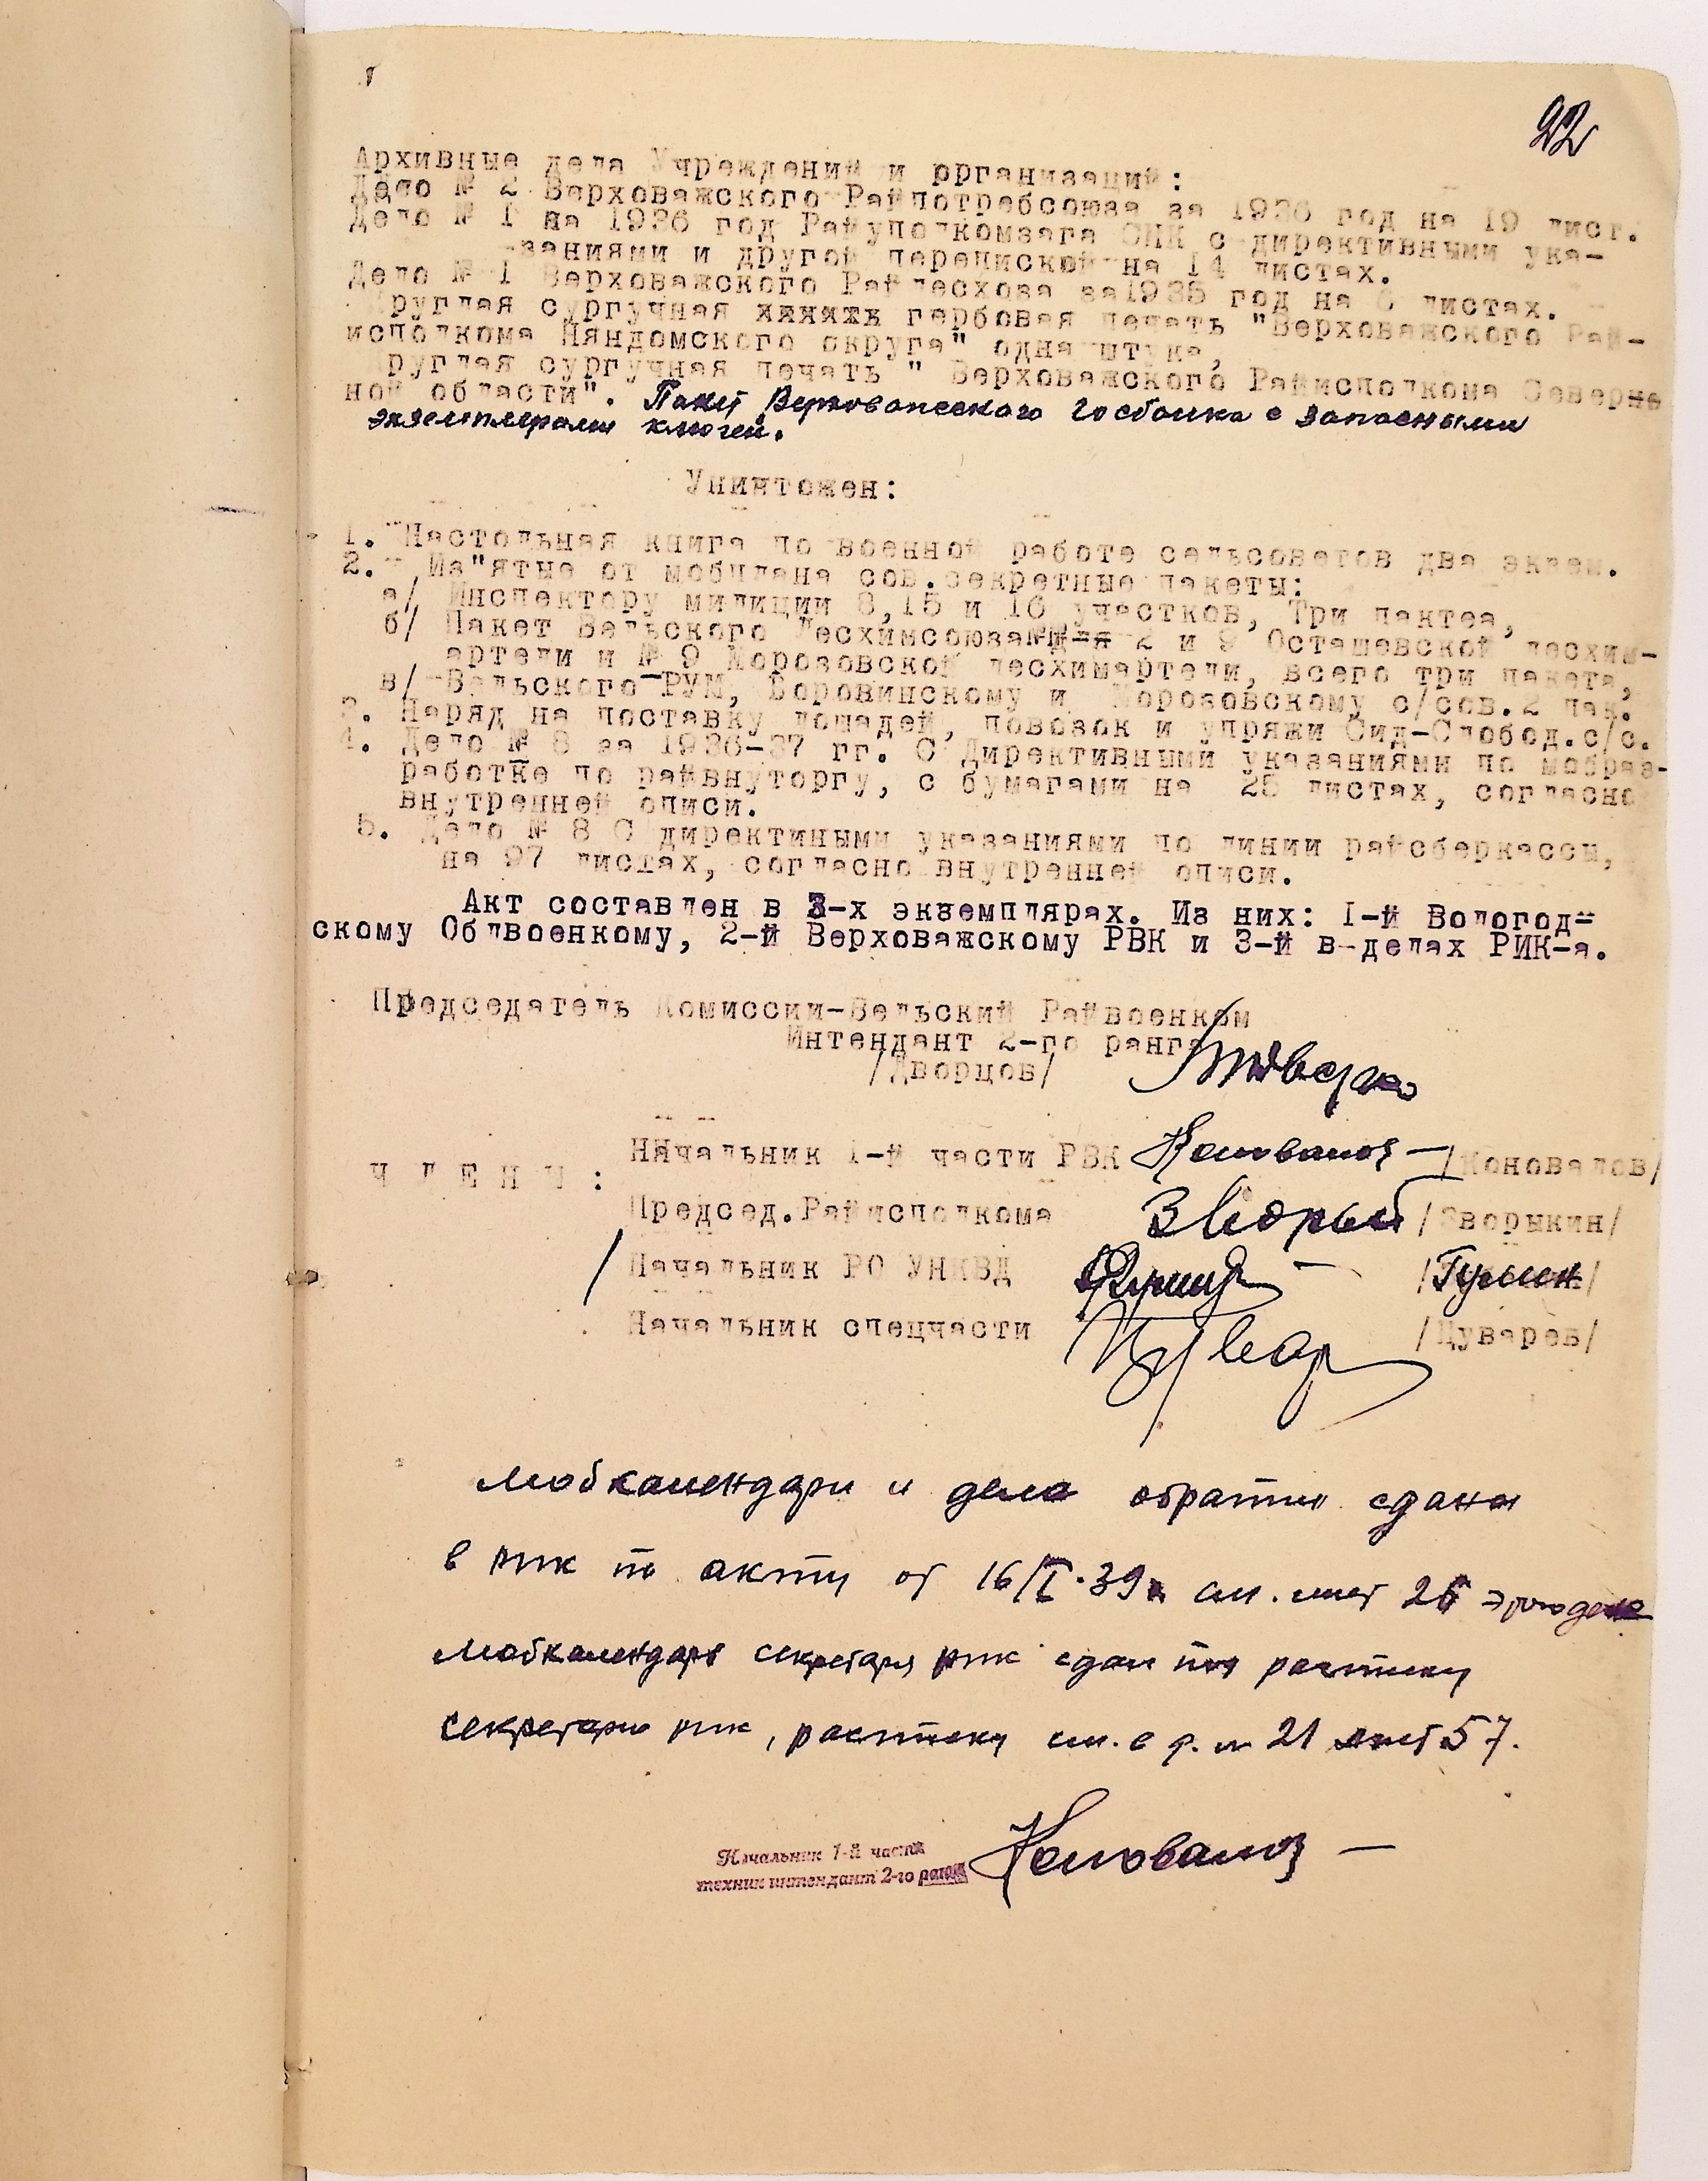 22
Архивные дела Учреждений и организаций:
Дело № 2 Верховажского Райпотребсоюза за 1936 год на 19 лист.
Дело № 1 на 1936 год Райуполкомзага СНК с директивными ука-
заниями и другой перепиской на 14 листах.
Дело № 1 Верховажского Райлесхоза за 1935 год на 6 листах.
Круглая сургучная гербовая печать "Верховажского Рай-
исполкома Няндомского округа" одна штука,
Круглая сургучная печать " Верховажского Райисполкона Северно
ной области". Пакет Верховажского Госбанка с запасными
экземплярами ключей.
Уничтожен:
1. Настольная книга по военной работе сельсоветов два экзем.
2. Из"ятые от мобплана сов.секретные пакеты:
а/ Инспектору милиции 8,15 и 16 участков, Три пактеа,
б/ Пакет Вельского Лесхимсоюза 2 и 9 Осташевской лесхим-
артели и № 9 Морозовской лесхимартели, всего три пакета,
в/ Вельского РУМ, Боровинскому и Морозовскому с/сов.2 пак.
3. Наряд на поставку лошадей, повозок и упряжи Сид-Слобод.с/с.
4. Дело № 8 за 1936-37 гг. С Директивными указаниями по мобраз-
работке по райвнуторгу, с бумагами на 25 листах, согласно
внутренней описи.
5. Дело № 8 С директиными указаниями по линии райсберкассы,
на 97 листах, согласно внутренней описи.
Акт составлен в 3-х экземплярах. Из них: I-й Вологод-
скому Облвоенкому, 2-й Верховажскому РВК и 3-й в делах РИК-а.
Председатель Комиссии-Вельский Райвоенком
Интендант 2-го ранга
/Дворцов/
ЧЛЕНЫ: Начальник 1-й части РВК Коновалов /Коновалов/
Председ.Райисполкома Зворык /Зворыкин/
/ Начальник РО УНКВД /Гушин/
Начальник спецчасти Цувар /Цуварев/
Мобкалендари и дела обратно сданы
в рик по акту от 16/I-39 см. лист 26 этого дела
Мобкалендарь секретаря рик сдан под расписку
секретарю рик, расписку см. в д. № 21 лист 57.
Начальник 1-й части
техник интендант 2-го ранга Коновалов